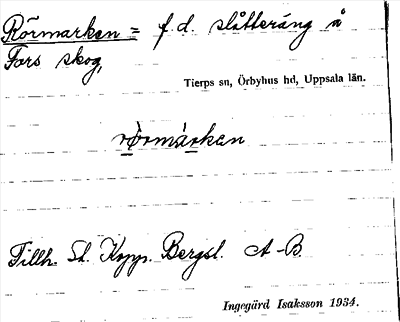 Rörmarken = f.d. slåtteräng å
Fors skog,
Tierps sn, Örbyhus hd, Uppsala län.
rö̀rmárkan
Tillh. St. Kopp. Bergsl. A-B.
Ingegärd Isaksson 1934.